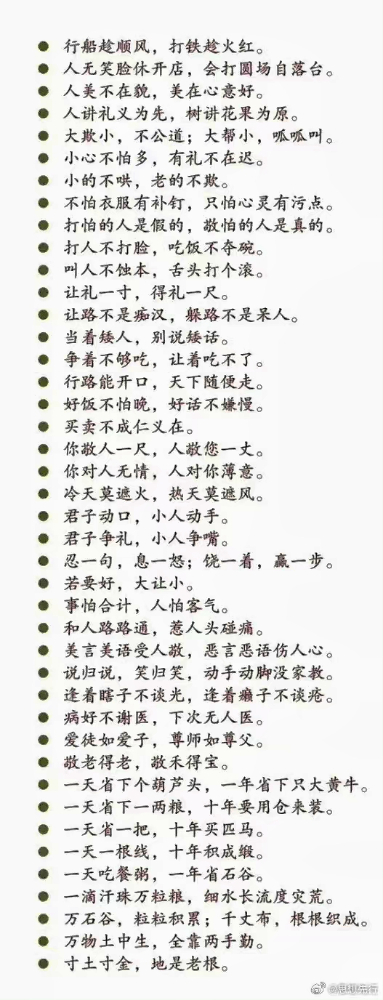 行船趁顺风，打铁趁火红。
人无笑脸休开店，会打圆场自落台。
人美不在貌，美在心意好。
人讲礼义为先，树讲花果为原。
大欺小，不公道；大帮小，呱呱叫。
小心不怕多，有礼不在迟。
小的不哄，老的不欺。
不怕衣服有补钉，只怕心灵有污点。
打怕的人是假的，敬怕的人是真的。
打人不打脸，吃饭不夺碗。
叫人不蚀本，舌头打个滚。
让礼一寸，得礼一尺。
让路不是痴汉，躲路不是呆人。
当着矮人，别说矮话。
争着不够吃，让着吃不了。
行路能开口，天下随便走。
好饭不怕晚，好话不嫌慢。
买卖不成仁义在。
你敬人一尺，人敬您一丈。
你对人无情，人对你薄意。
冷天莫遮火，热天莫遮风。
君子动口，小人动手。
君子争礼，小人争嘴。
忍一句，息一怒；饶一着，赢一步。
若要好，大让小。
事怕合计，人怕客气。
和人路路通，惹人头碰痛。
美言美语受人敬，恶言恶语伤人心。
说归说，笑归笑，动手动脚没家教。
逢着瞎子不谈光，逢着癞子不谈疮。
病好不谢医，下次无人医。
爱徒如爱子，尊师如尊父。
敬老得老，敬禾得宝。
一天省下个葫芦头，一年省下只大黄牛。
一天省下一两粮，十年要用仓来装。
一天省一把，十年买匹马。
一天一根线，十年积成缎。
一天吃餐粥，一年省石谷。
一滴汗珠万粒粮，细水长流度灾荒。
万石谷，粒粒积累；千丈布，根根织成。
万物土中生，全靠两手勤。
寸土寸金，地是老根。